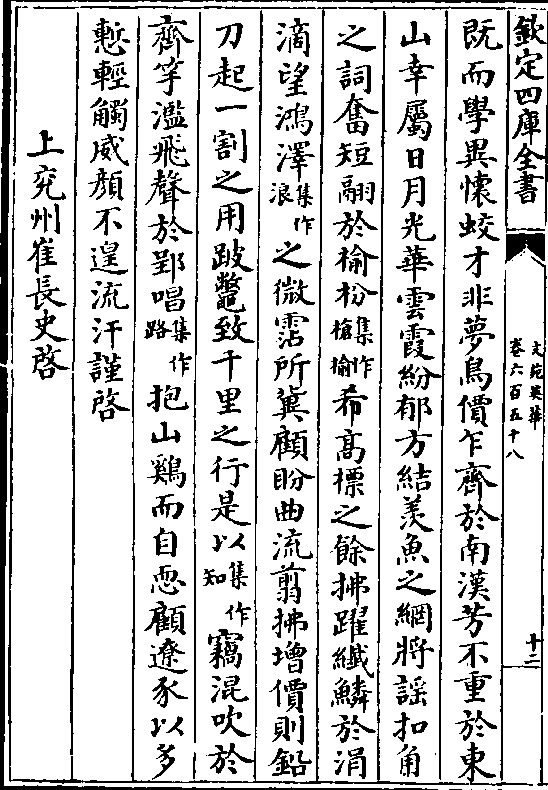 欽定四庫全書
文苑英華
卷六百五十八
十二
既而學異懷蛟才非夢鳥價乍齊於南漢芳不重於東
山幸屬日月光華雲霞紛郁方結羨魚之網將謡扣角
之詞奮短翮於榆枌集作槍榆希高標之餘拂躍纎鱗於涓
滴望鴻澤集作浪之微霑所冀顧盼曲流翦拂增價則鉛
刀起一割之用跛鼈致千里之行是以集作知竊混吹於
齊竽濫飛聲於郢唱集作路抱山鷄而自恧顧遼豕以多
慙輕觸威顔不遑流汗謹啓
上兖州崔長史啓